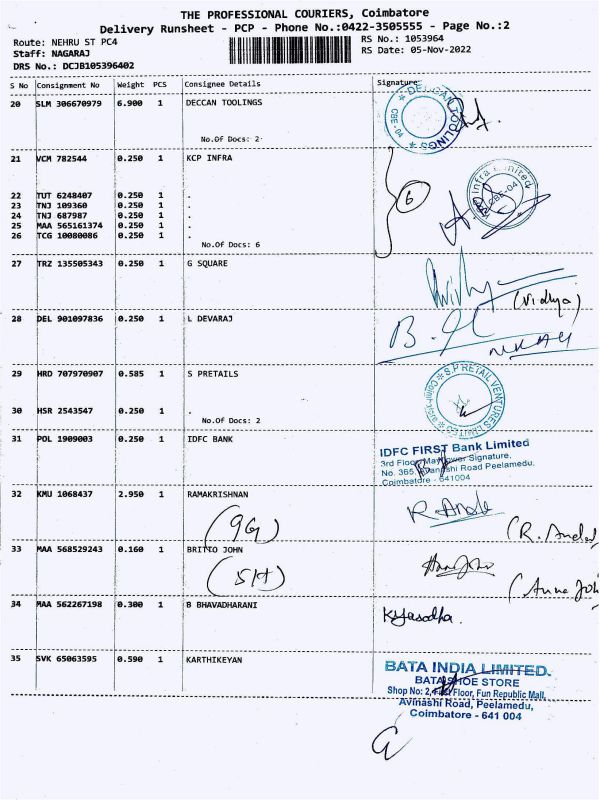 THE PROFESSIONAL COURIERS, Coimbatore
Delivery Runsheet - PCP - Phone No.:0422-3505555 - Page No.:2
Route: NEHRU ST PC4 RS No.: 1053964
Staff: NAGARAJ RS Date: 05-Nov-2022
DRS No.: DCJB105396402
S No Consignment No Weight PCS Consignee Details Signature
20 SLM 306670979 6.900 1 DECCAN TOOLINGS
DECCAN TOOLINGS CBE-04
No.Of Docs: 2
21 VCM 782544 0.250 1 KCP INFRA
Infra Limited CBE-04
6
22 TUT 6248407 0.250 1 .
23 TNJ 109360 0.250 1 .
24 TNJ 687987 0.250 1 .
25 MAA 565161374 0.250 1 .
26 TCG 10080086 0.250 1 .
No.Of Docs: 6
27 TRZ 135505343 0.250 1 G SQUARE
(Vidhya)
28 DEL 901097836 0.250 1 L DEVARAJ
29 HRD 707970907 0.585 1 S PRETAILS
S.P RETAIL VENTURES LIMITED
30 HSR 2543547 0.250 1 .
No.Of Docs: 2
31 POL 1909003 0.250 1 IDFC BANK
IDFC FIRST Bank Limited
3rd Floor, Mayflower Signature,
No. 365, Avinashi Road Peelamedu,
Coimbatore - 641004
32 KMU 1068437 2.950 1 RAMAKRISHNAN
(9G)
33 MAA 568529243 0.160 1 BRITTO JOHN
(5H)
34 MAA 562267198 0.300 1 B BHAVADHARANI
K.Yasodha.
35 SVK 65063595 0.590 1 KARTHIKEYAN
BATA INDIA LIMITED.
BATA SHOE STORE
Shop No: 2, First Floor, Fun Republic Mall,
Avinashi Road, Peelamedu,
Coimbatore - 641 004